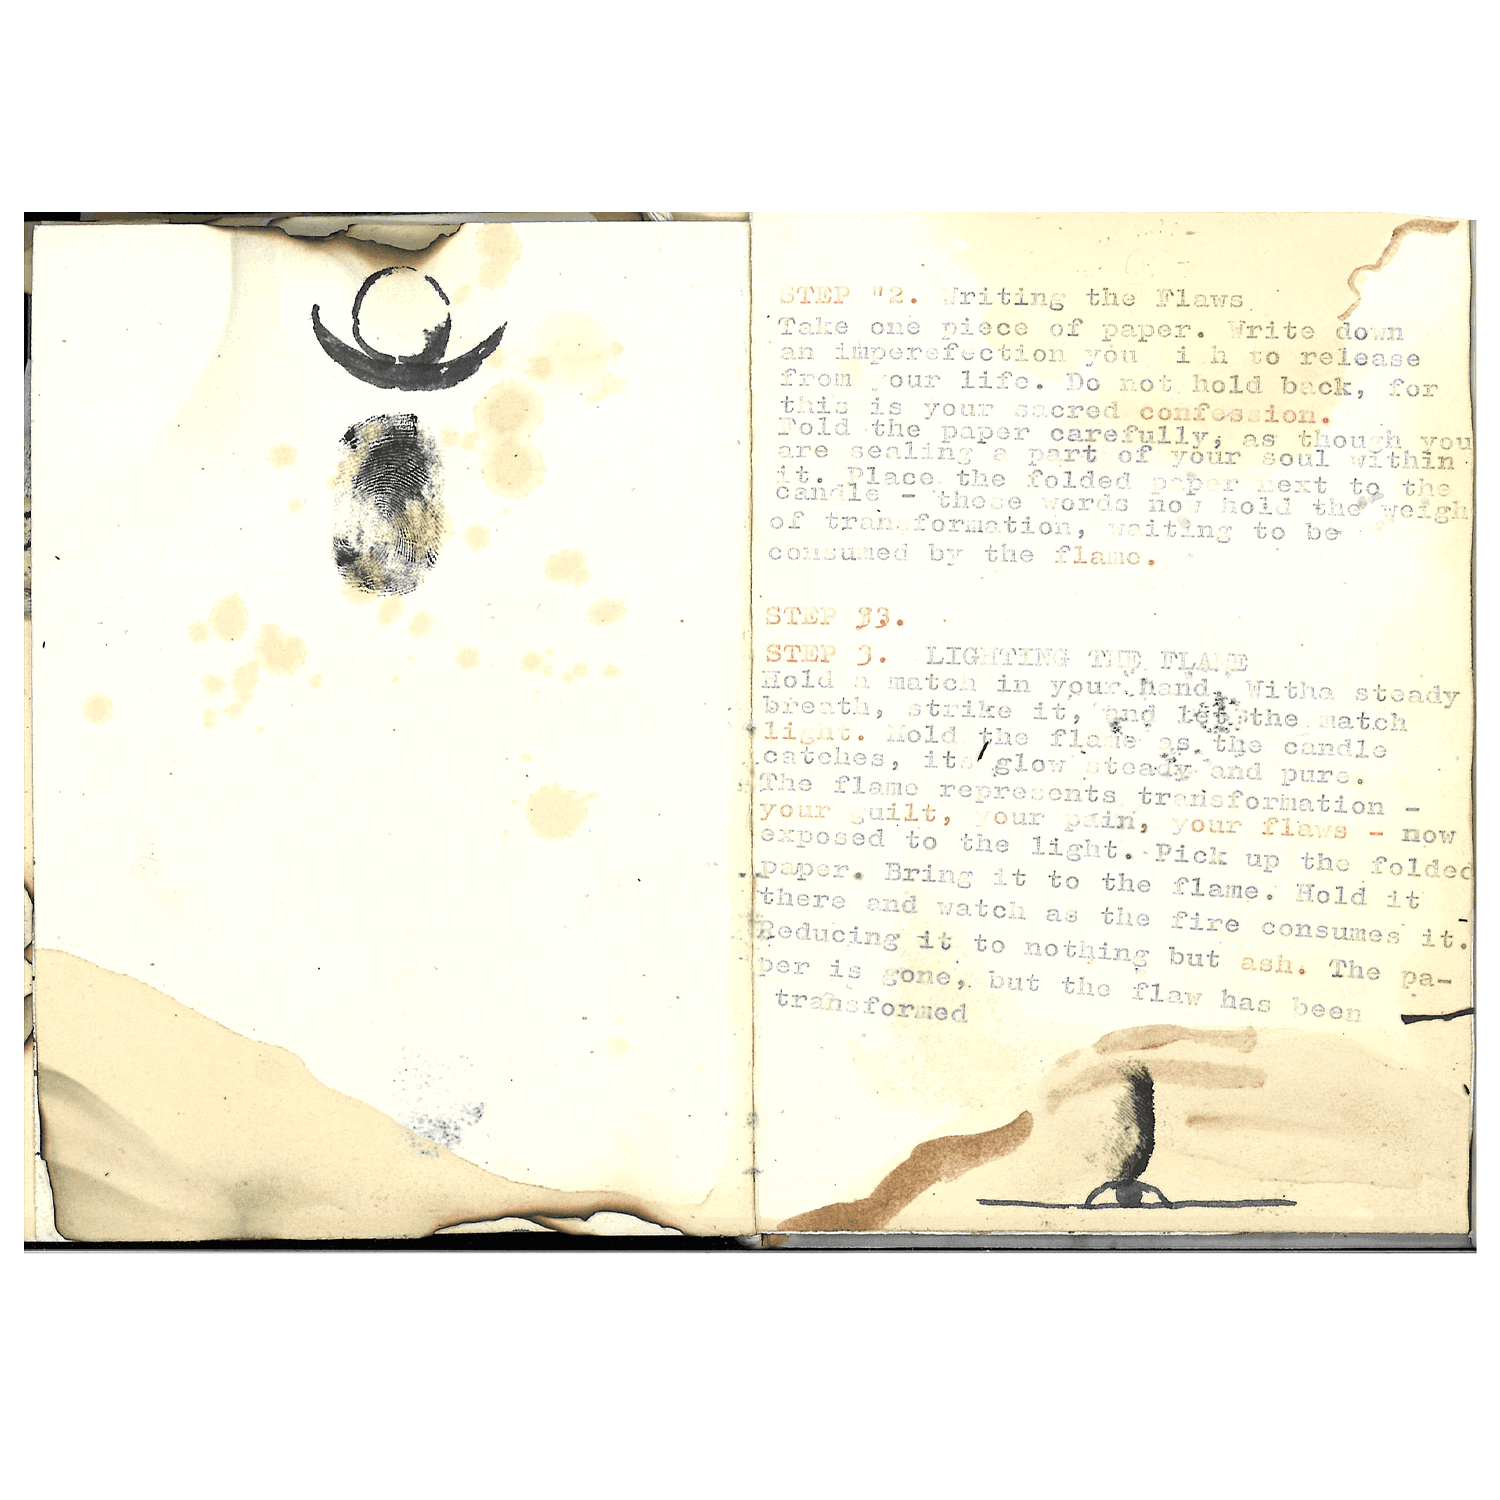 STEP "2. Writing the Flaws
Take one piece of paper. Write down
an imperefection you i h to release
from your life. Do not hold back, for
this is your sacred confession.
Fold the paper carefully, as though you
are sealing a part of your soul within
it. Place the folded paper next to the
candle - these words now hold the weigh
of transformation, waiting to be
consumed by the flame.
STEP 33.
STEP 3. LIGHTING THE FLAME
Hold a match in your hand. Witha steady
breath, strike it, and let the match
light. Hold the flame as the candle
catches, its glow steady and pure.
The flame represents transformation -
your guilt, your pain, your flaws - now
exposed to the light. Pick up the folded
paper. Bring it to the flame. Hold it
there and watch as the fire consumes it.
Reducing it to nothing but ash. The pa-
per is gone, but the flaw has been
transformed